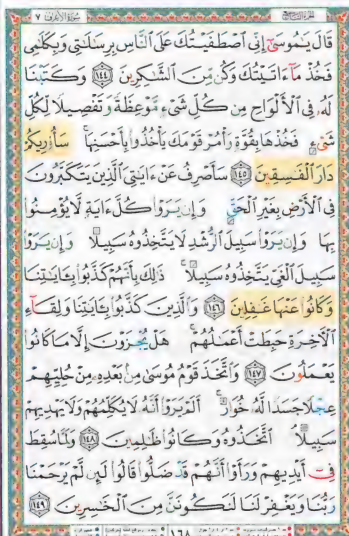 الجزء التاسع
سورة الأعراف ٧
قَالَ يَٰمُوسَىٰٓ إِنِّي ٱصۡطَفَيۡتُكَ عَلَى ٱلنَّاسِ بِرِسَٰلَٰتِي وَبِكَلَٰمِي
فَخُذۡ مَآ ءَاتَيۡتُكَ وَكُن مِّنَ ٱلشَّٰكِرِينَ ١٤٤ وَكَتَبۡنَا
لَهُۥ فِي ٱلۡأَلۡوَاحِ مِن كُلِّ شَيۡءٖ مَّوۡعِظَةٗ وَتَفۡصِيلٗا لِّكُلِّ
شَيۡءٖ فَخُذۡهَا بِقُوَّةٖ وَأۡمُرۡ قَوۡمَكَ يَأۡخُذُواْ بِأَحۡسَنِهَاۚ سَأُوْرِيكُمۡ
دَارَ ٱلۡفَٰسِقِينَ ١٤٥ سَأَصۡرِفُ عَنۡ ءَايَٰتِيَ ٱلَّذِينَ يَتَكَبَّرُونَ
فِي ٱلۡأَرۡضِ بِغَيۡرِ ٱلۡحَقِّ وَإِن يَرَوۡاْ كُلَّ ءَايَةٖ لَّا يُؤۡمِنُواْ
بِهَا وَإِن يَرَوۡاْ سَبِيلَ ٱلرُّشۡدِ لَا يَتَّخِذُوهُ سَبِيلٗا وَإِن يَرَوۡاْ
سَبِيلَ ٱلۡغَيِّ يَتَّخِذُوهُ سَبِيلٗاۚ ذَٰلِكَ بِأَنَّهُمۡ كَذَّبُواْ بِـَٔايَٰتِنَا
وَكَانُواْ عَنۡهَا غَٰفِلِينَ ١٤٦ وَٱلَّذِينَ كَذَّبُواْ بِـَٔايَٰتِنَا وَلِقَآءِ
ٱلۡأٓخِرَةِ حَبِطَتۡ أَعۡمَٰلُهُمۡۚ هَلۡ يُجۡزَوۡنَ إِلَّا مَا كَانُواْ
يَعۡمَلُونَ ١٤٧ وَٱتَّخَذَ قَوۡمُ مُوسَىٰ مِنۢ بَعۡدِهِۦ مِنۡ حُلِيِّهِمۡ
عِجۡلٗا جَسَدٗا لَّهُۥ خُوَارٌۚ أَلَمۡ يَرَوۡاْ أَنَّهُۥ لَا يُكَلِّمُهُمۡ وَلَا يَهۡدِيهِمۡ
سَبِيلًاۘ ٱتَّخَذُوهُ وَكَانُواْ ظَٰلِمِينَ ١٤٨ وَلَمَّا سُقِطَ
فِيٓ أَيۡدِيهِمۡ وَرَأَوۡاْ أَنَّهُمۡ قَدۡ ضَلُّواْ قَالُواْ لَئِن لَّمۡ يَرۡحَمۡنَا
رَبُّنَا وَيَغۡفِرۡ لَنَا لَنَكُونَنَّ مِنَ ٱلۡخَٰسِرِينَ ١٤٩
١٦٨